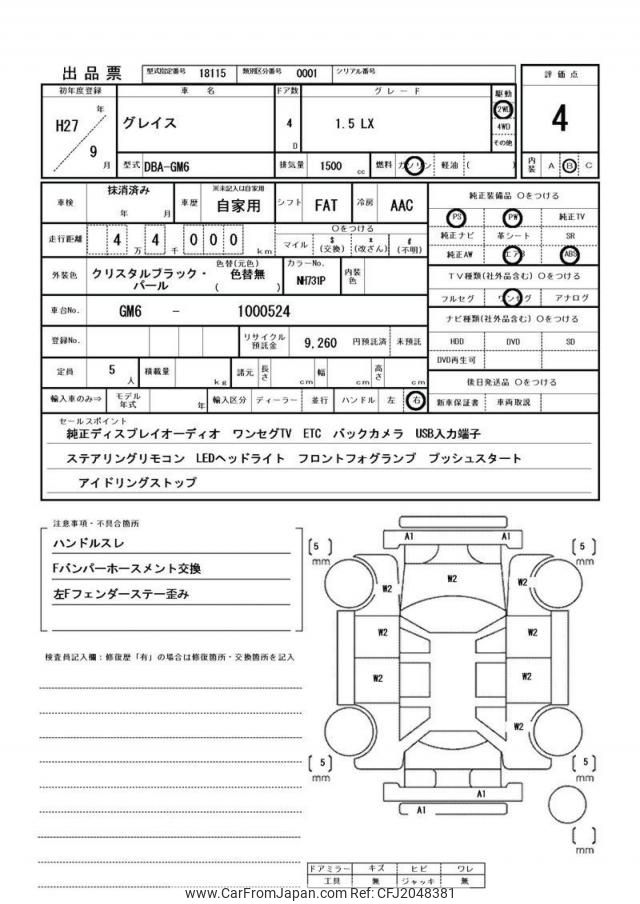 出品票 型式指定番号 18115 類別区分番号 0001 シリアル番号
評価点
4
初年度登録 車名 ドア数 グレード 駆動
H27 年 9 月 グレイス 4 D 1.5 LX 2WD
4WD
その他
型式 DBA-GM6 排気量 1500 cc 燃料 ガソリン 軽油 ( ) 内装 A B C
車検 抹消済み 年 月 車歴 ※未記入は自家用 自家用 シフト FAT 冷房 AAC
走行距離 4 万 4 千 0 0 0 km ○をつける マイル $ (交換) * (改ざん) # (不明)
外装色 クリスタルブラック・パール 色替(元色) 色替無 ( ) カラーNo. NH731P 内装色
車台No. GM6 - 1000524
登録No. リサイクル預託金 9,260 円預託済 未預託
定員 5 人 積載量 kg 諸元 長さ cm 幅 cm 高さ cm
輸入車のみ⇒ モデル年式 年 輸入区分 ディーラー 並行 ハンドル 左 右
純正装備品 ○をつける
PS PW 純正TV
純正ナビ 革シート SR
純正AW エアB ABS
TV種類(社外品含む) ○をつける
フルセグ ワンセグ アナログ
ナビ種類(社外品含む) ○をつける
HDD DVD SD
DVD再生可
後日発送品 ○をつける
新車保証書 車両取説
セールスポイント
純正ディスプレイオーディオ ワンセグTV ETC バックカメラ USB入力端子
ステアリングリモコン LEDヘッドライト フロントフォグランプ プッシュスタート
アイドリングストップ
注意事項・不具合箇所
ハンドルスレ
Fバンパーホースメント交換
左Fフェンダーステー歪み
検査員記入欄：修復歴「有」の場合は修復箇所・交換箇所を記入
A1 A1
[5] mm [5] mm
W2 W2 W2
W2 W2
W2 W2
W2
[5] mm [5] mm
A1
A1
[ ] mm
ドアミラー キズ ヒビ ワレ
工具 無 ジャッキ 無
www.CarFromJapan.com CFJ2048381